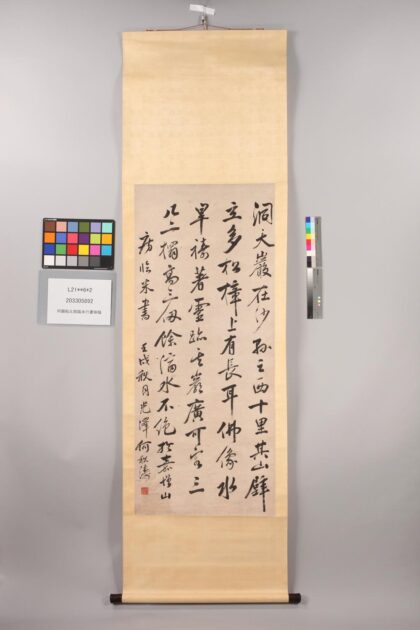 洞天巖在沙縣之西十里其山壁
立多松樟上有長耳佛像水
旱禱著靈跡其巖廣可容三
几二榻高三仞餘滴水不絕於嘉增山
房臨米書 壬戌秋月光澤何秋濤
L21**6*2
203305092